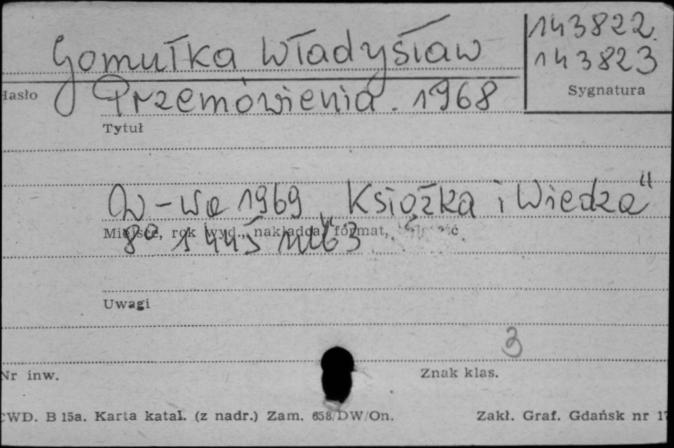 143822.
Gomułka Władysław
143823
Hasło
Przemówienia. 1968
Sygnatura
Tytuł
W-wa 1969 „Książka i Wiedza"
Miejsce, rok wyd., nakładca, format,
8°
Uwagi
3
Nr inw.
Znak klas.
CWD. B 15a. Karta katal. (z nadr.) Zam. 658/DW/On.
Zakł. Graf. Gdańsk nr 1